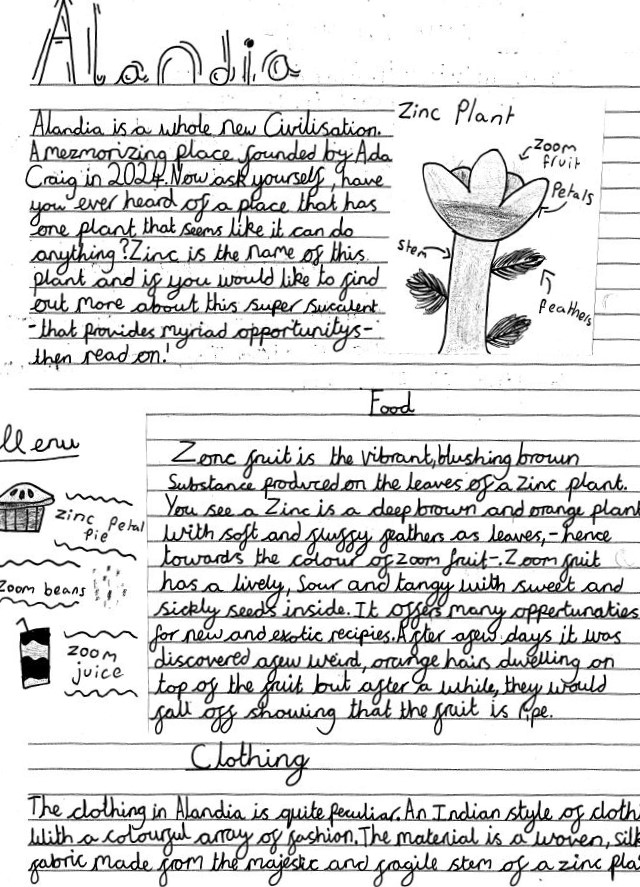 Alandia
Alandia is a whole new Civilisation.
A mezmorizing place founded by Ada
Craig in 2024. Now ask yourself, have
you ever heard of a place that has
one plant that seems like it can do
anything? Zinc is the name of this
plant and if you would like to find
out more about this super succulent
-that provides myriad opportunitys-
then read on!
Zinc Plant
Zoom
fruit
Petals
Stem
feathers
Food
Menu
zinc petal
pie
zoom beans
zoom
juice
Zonc fruit is the vibrant, blushing brown
Substance produced on the leaves of a Zinc plant.
You see a Zinc is a deep brown and orange plant
with soft and fluffy feathers as leaves,-hence
towards the colour of zoom fruit-. Zoom fruit
has a lively, Sour and tangy with sweet and
sickly seeds inside. It offers many oppertunaties
for new and exotic recipies. After afew days it was
discovered afew weird, orange hairs dwelling on
top of the fruit but after a while, they would
fall off showing that the fruit is ripe.
Clothing
The clothing in Alandia is quite peculiar. An Indian style of clothi
With a colourful array of fashion. The material is a woven, silk
fabric made from the majestic and fragile stem of a zinc pla